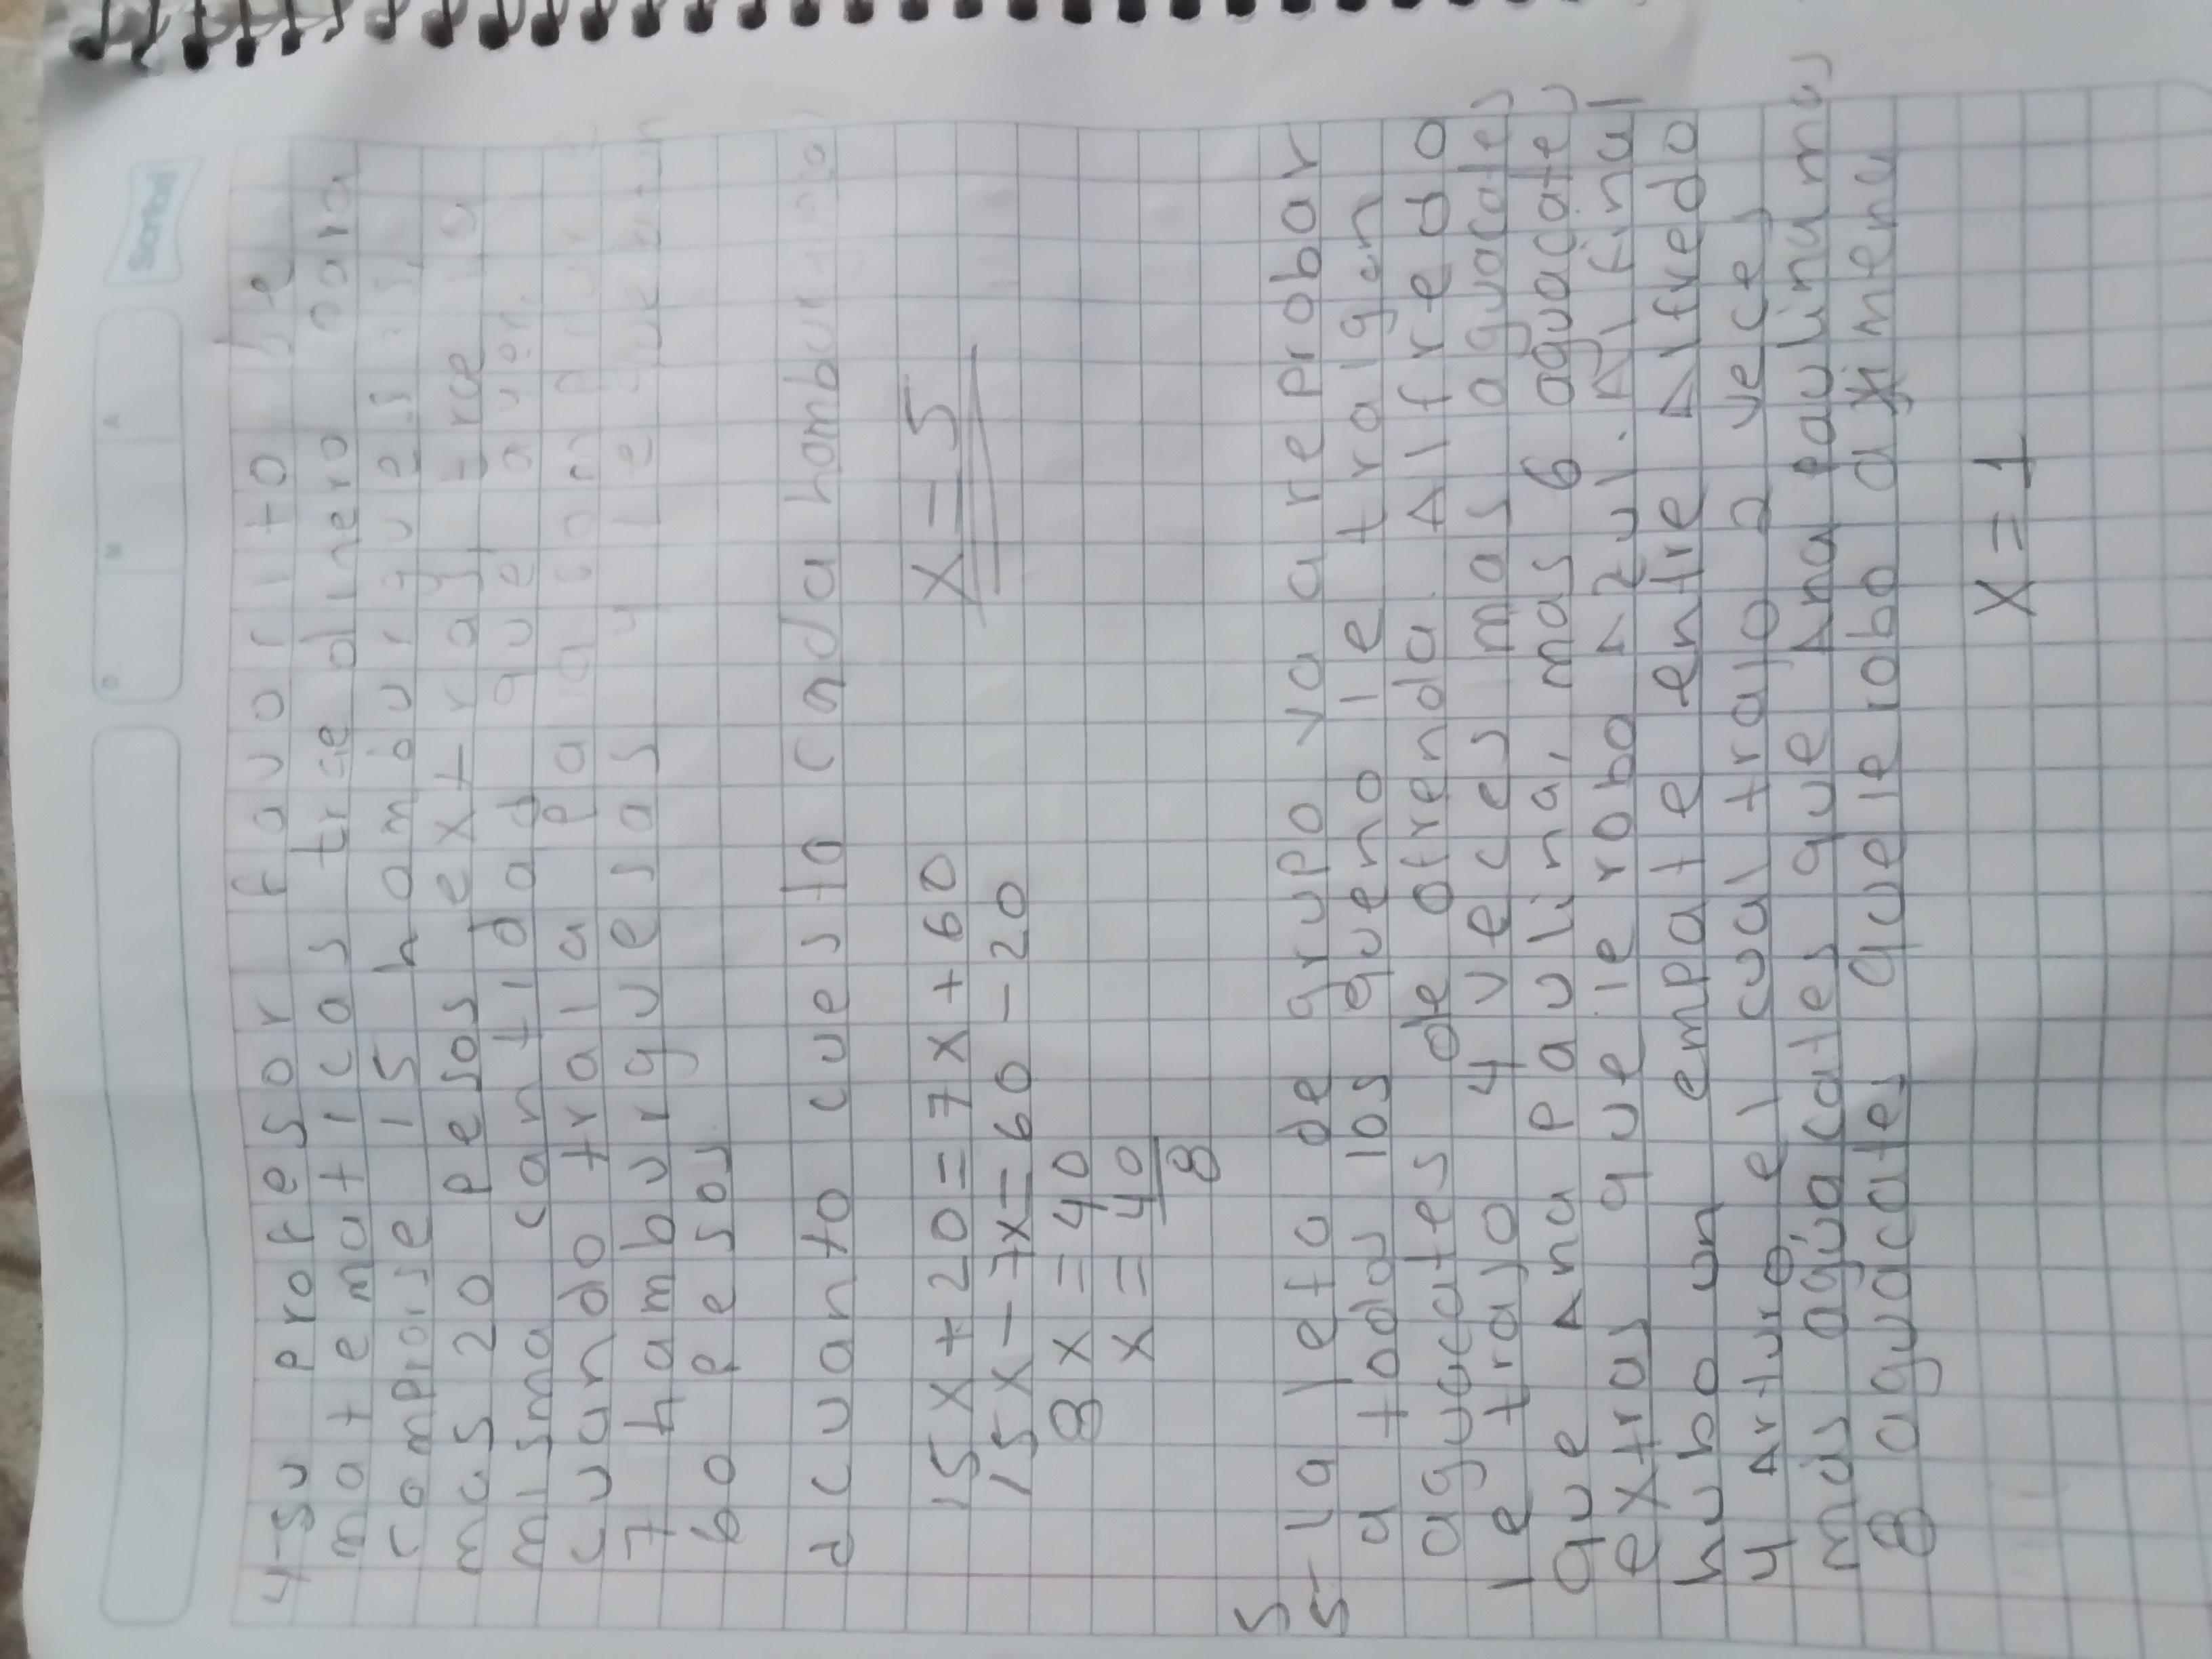 Scribe
D M A
4-su profesor favorito de
matematicas trae dinero para
comprarse 15 hamburguesas
mas 20 pesos extra y trae la
misma cantidad que ayer,
cuando traia para comprar
7 hamburguesas y le quedaban
60 pesos.
d cuanto cuesta cada hamburguesa
15x+20=7x+60 x=5
15x-7x=60-20
8x=40
x=40
8
5
5-la jefa de grupo va a reprobar
a todos los queno le traigan
aguacates de ofrenda. Alfredo
le trajo 4 veces mas aguacates
que Ana Paulina, mas 6 aguacates
extras que le robo Azul. Al final
hubo un empate entre Alfredo
y Arturo, el cual trajo 2 veces
más aguacates que Ana Paulina mas
8 aguacates que le robo a ximena
x=1